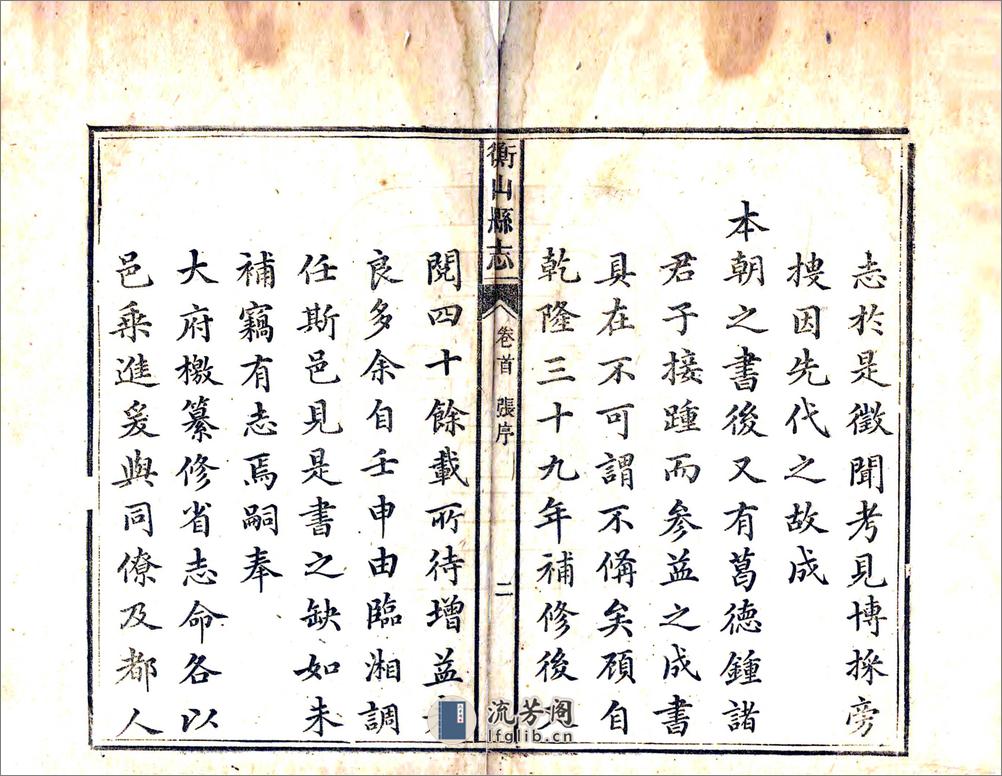 志於是徵聞考見博採旁
搜因先代之故成
本朝之書後又有葛德鍾諸
君子接踵而參益之成書
具在不可謂不備矣顧自
乾隆三十九年補修後
衡山縣志
卷首 張序
二
閱四十餘載所待增益
良多余自壬申由臨湘調
任斯邑見是書之缺如未
補竊有志焉嗣奉
大府檄纂修省志命各以
邑乘進爰與同僚及都人
流芳阁
lfglib.cn